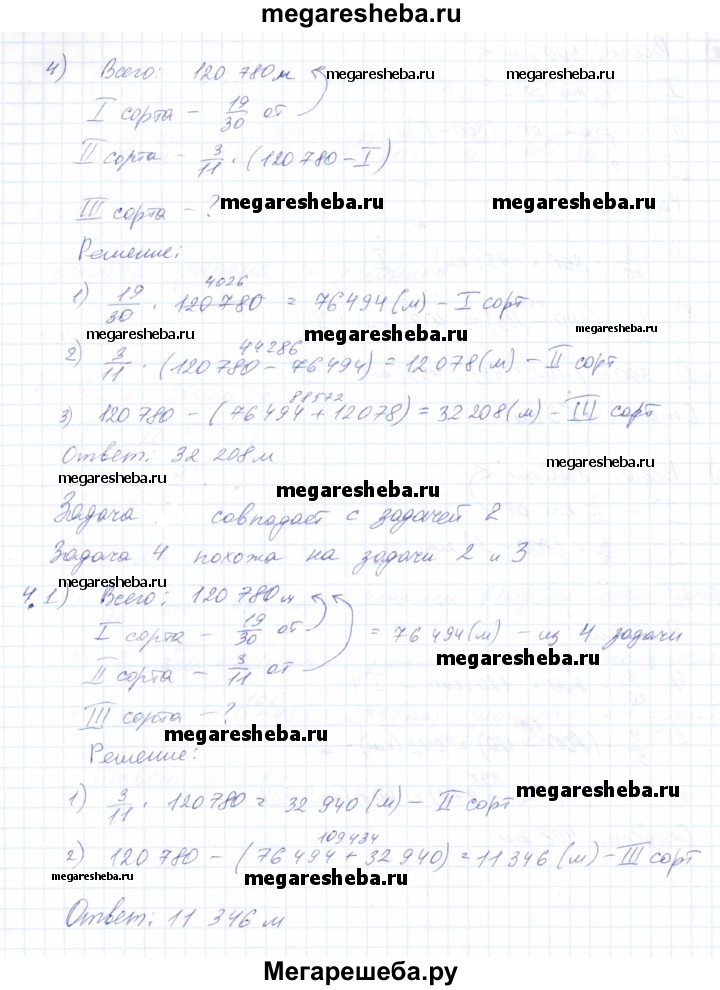 megaresheba.ru
4) Всего: 120 780 м megaresheba.ru megaresheba.ru
I сорта - 19/30 от
II сорта - 3/11 · (120 780 - I)
III сорта - ? megaresheba.ru megaresheba.ru
Решение:
4026
1) 19/30 · 120 780 = 76 494 (м) - I сорт
megaresheba.ru megaresheba.ru megaresheba.ru
44286
2) 3/11 · (120 780 - 76 494) = 12 078 (м) - II сорт
88572
3) 120 780 - (76 494 + 12078) = 32 208 (м) - III сорт
Ответ: 32 208 м
megaresheba.ru megaresheba.ru megaresheba.ru
Задача : совпадает с задачей 2
Задача 4 похожа на задачи 2 и 3
megaresheba.ru megaresheba.ru
4. 1) Всего: 120 780 м
I сорта - 19/30 от = 76 494 (м) - из 4 задачи
II сорта - 3/11 от megaresheba.ru
III сорта - ?
megaresheba.ru
Решение:
1) 3/11 · 120 780 = 32 940 (м) - II сорт megaresheba.ru
109434
2) 120 780 - (76 494 + 32 940) = 11 346 (м) - III сорт
megaresheba.ru megaresheba.ru megaresheba.ru
Ответ: 11 346 м
Мегарешеба.ру